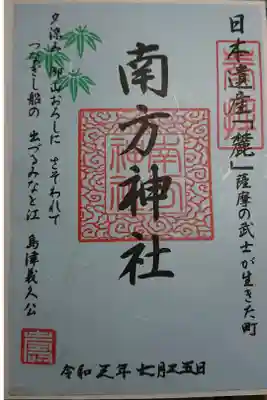 日本遺産「麓」薩摩の武士が生きた町
奉拝
南方神社
夕涼み 御山おろしに さそわれて
つなぎし船の 出づるみなと江 島津義久公
令和五年七月五日